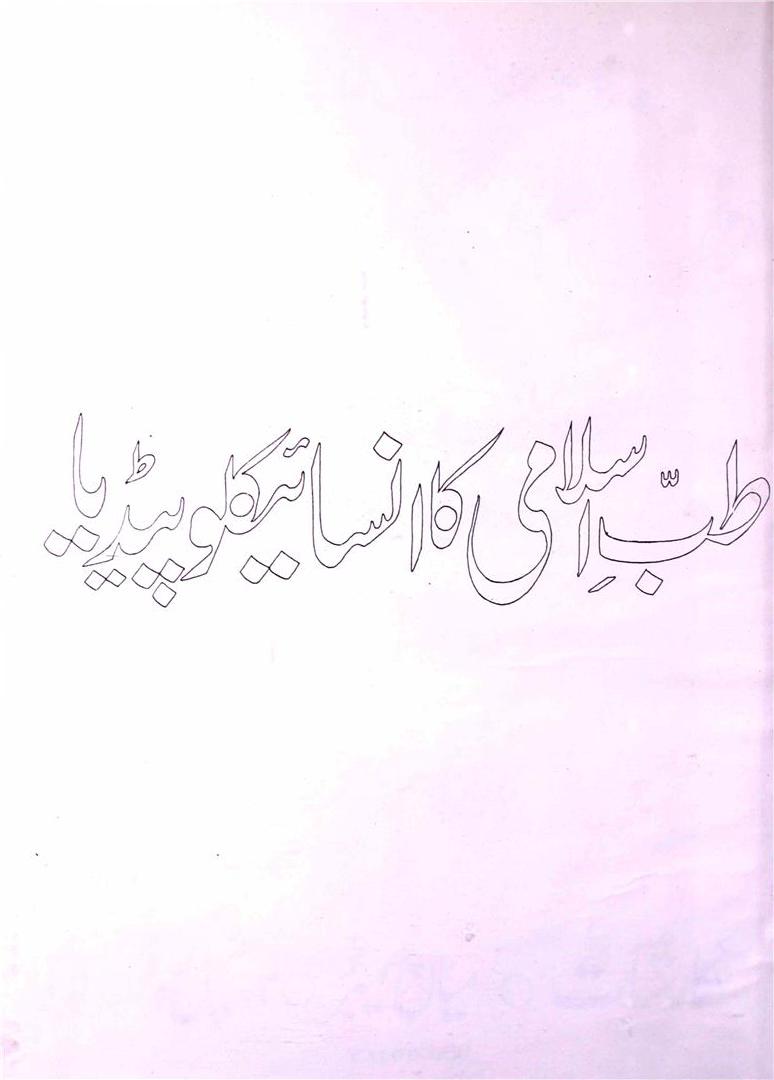 طبِّ اسلامی کا انسائیکلوپیڈیا